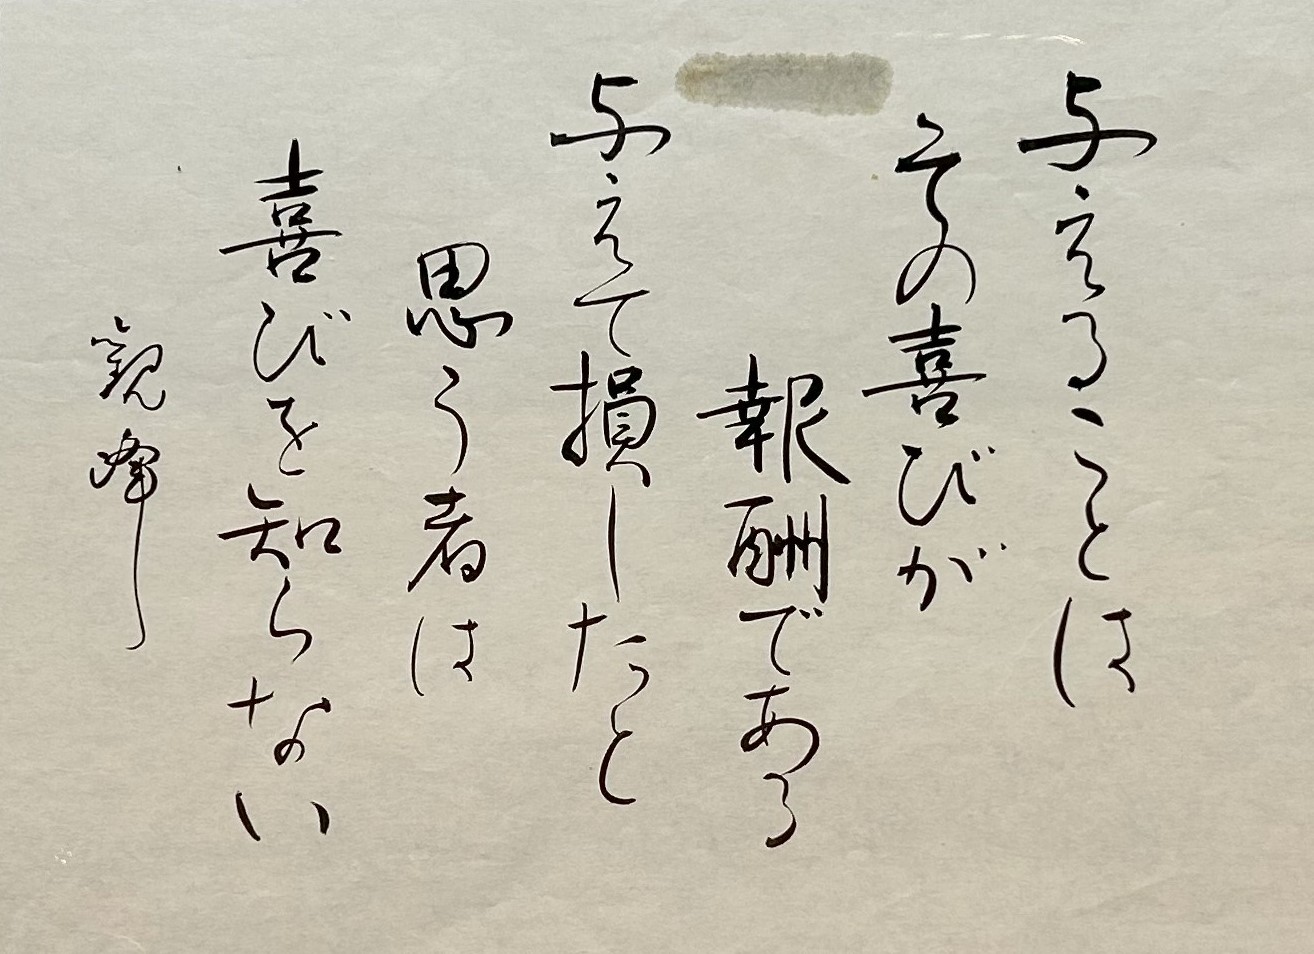 与えることは
その喜びが
報酬である
与えて損したと
思う者は
喜びを知らない
観峰